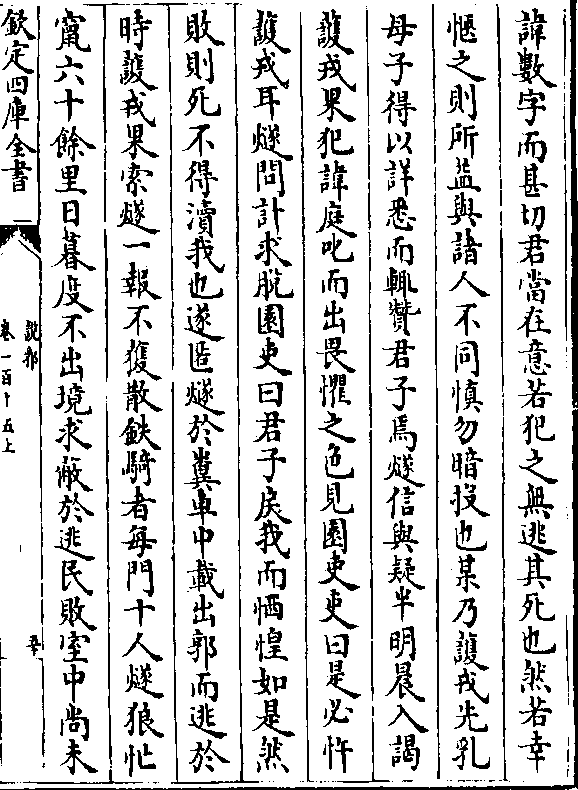 諱數字而甚切君當在意若犯之無逃其死也然若幸
愜之則所益與諸人不同慎勿暗投也某乃護戎先乳
母子得以詳悉而輒贊君子焉燧信與疑半明晨入謁
護戎果犯諱庭叱而出畏懼之色見園吏吏曰是必忤
護戎耳燧問計求脫園吏曰君子戾我而恓惶如是然
敗則死不得瀆我也遂匿燧於糞車中載出郭而逃於
時護戎果索燧一報不獲散鉄騎者每門十人燧狼忙
竄六十餘里日暮度不出境求蔽於逃民敗室中尚未
欽定四庫全書
說郛
卷一百十五上